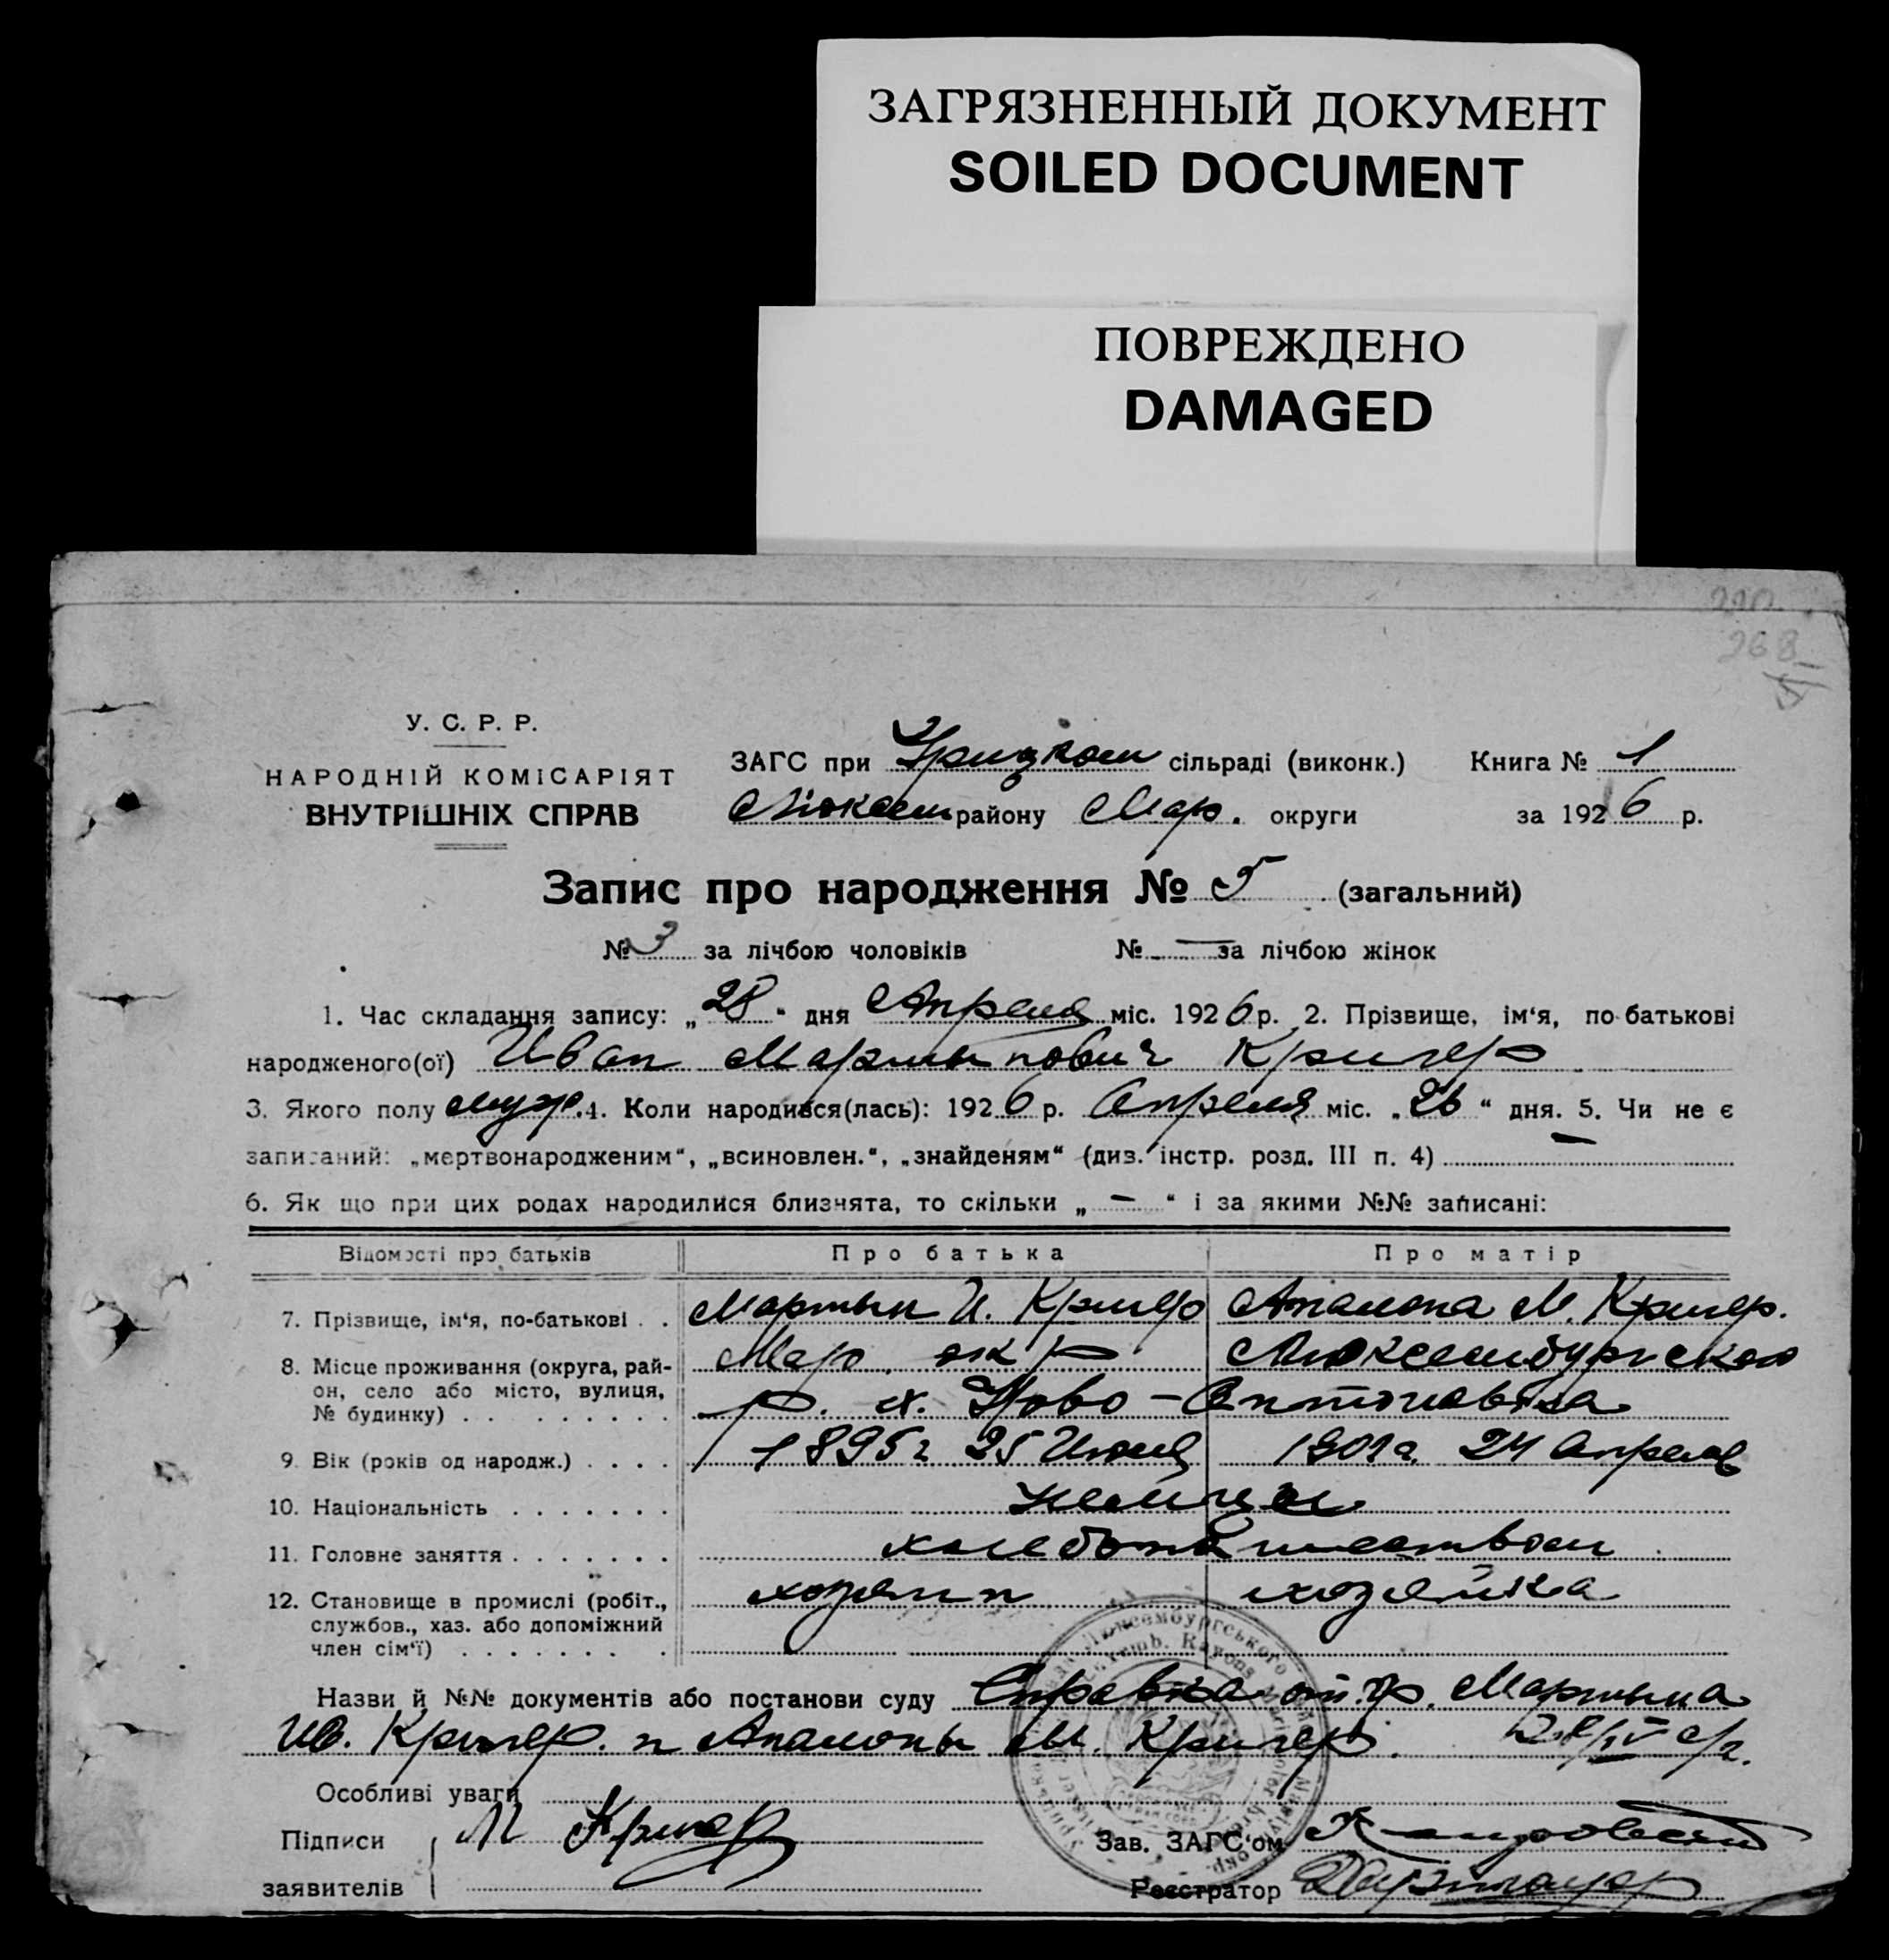 ЗАГРЯЗНЕННЫЙ ДОКУМЕНТ
SOILED DOCUMENT
ПОВРЕЖДЕНО
DAMAGED
220.
268
У. С. Р. Р.
НАРОДНІЙ КОМІСАРІЯТ
ВНУТРІШНІХ СПРАВ
ЗАГС при Урицком сільраді (виконк.) Книга № 1
Люксем району Мар. округи за 1926 р.
Запис про народження № 5 (загальний)
№ 3 за лічбою чоловіків № — за лічбою жінок
1. Час складання запису: „28“ дня Апреля міс. 1926 р. 2. Прізвище, ім‘я, по-батькові
народженого(ої) Иван Мартынович Кригер
3. Якого полу муж. 4. Коли народився(лась): 1926 р. Апреля міс. „26“ дня. 5. Чи не є
записаний: „мертвонародженим“, „всиновлен.“, „знайденям“ (див. інстр. розд. III п. 4) —
6. Як що при цих родах народилися близнята, то скільки „—“ і за якими №№ записані:
Відомості про батьків Про батька Про матір
7. Прізвище, ім‘я, по-батькові . . Мартын И. Кригер Апалона М. Кригер.
8. Місце проживання (округа, рай-
он, село або місто, вулиця,
№ будинку) . . . . . . . . .
Мар. окр Люксембургского
р. х. Ново-Антоновка
9. Вік (років од народж.) . . . . 1895 г. 25 Июня 1901 г. 24 Апреля
10. Національність . . . . . . . Немцы
11. Головне заняття . . . . . . . хлебопашеством
12. Становище в промислі (робіт.,
службов., хаз. або допоміжний
член сім‘ї) . . . . . . .
хозяин хозяйка
Назви й №№ документів або постанови суду Справка от гр. Мартына
Ив. Кригер. и Апалоны М. Кригер. 28/IV с/г.
Особливі уваги
Підписи М Кригер Зав. ЗАГС‘ом
заявителів Реєстратор